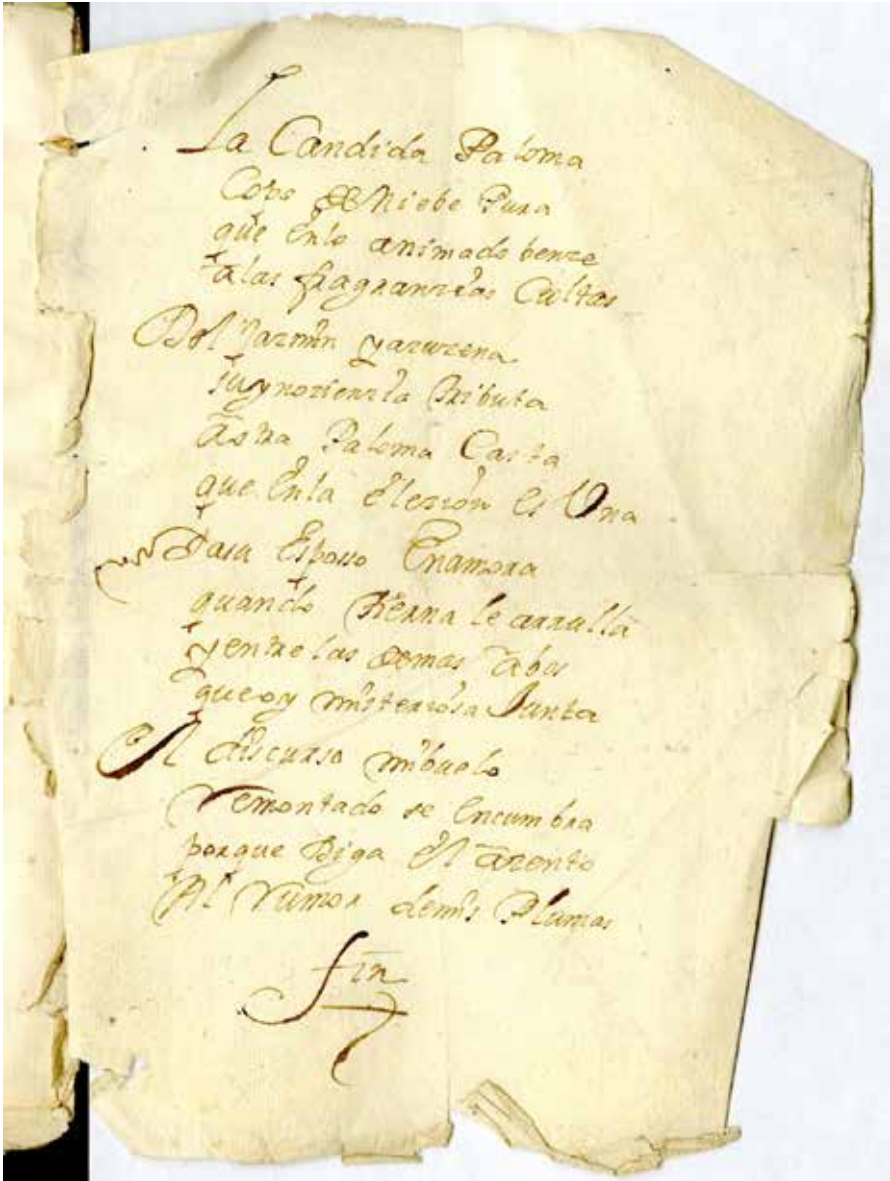 La Candida Paloma
Copo de Niebe Pura
que Enlo animado benze
a las fragranzias Cultas
Del Jazmin y azuzena
su ynozienzia tributa
a otra Paloma Casta
que Enla Elezion es Una
Pasu Esposso Enamora
quando tierna le arrulla
y entre las demas abes
que oy misteriosa Junta
El discurso mi buelo
Remontado se Encumbra
porque diga El azento
Al Rumor demis Plumas
fin